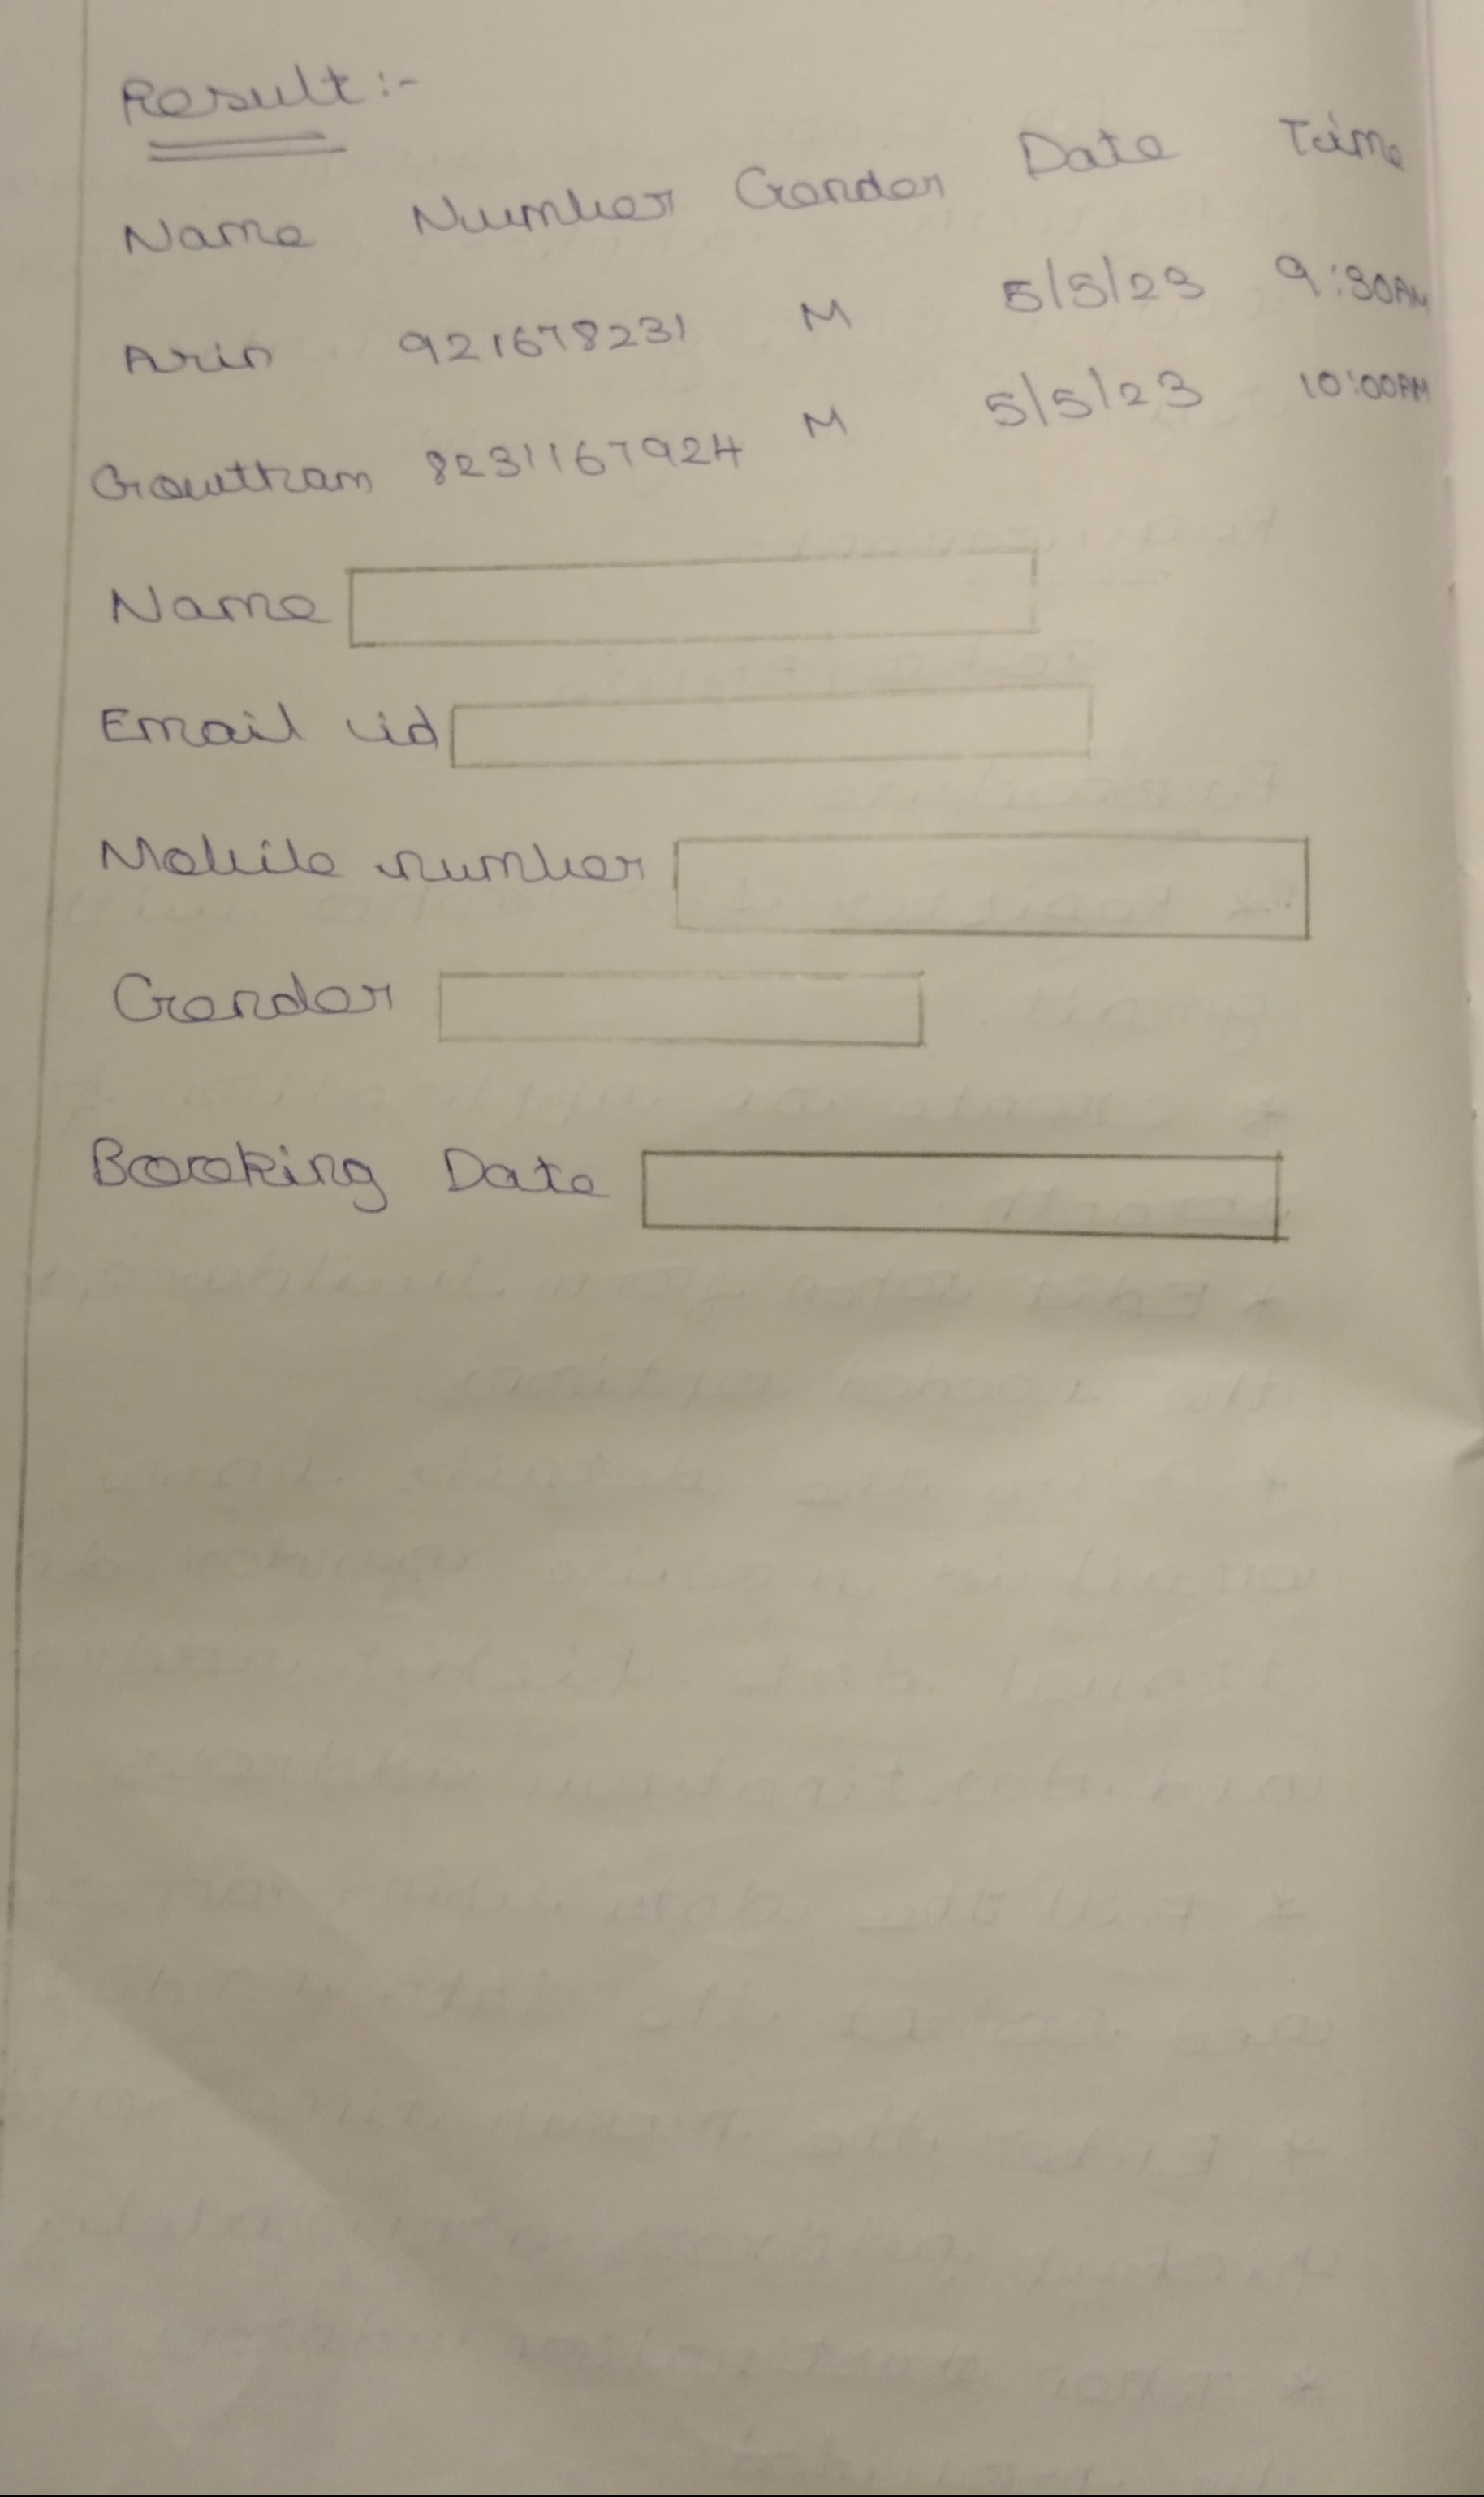 Result:-
Name Number Gender Date Time
Arin 921678231 M 5/5/23 9:30AM
Gowtham 8231167924 M 5/5/23 10:00AM
Name
Email id
Mobile number
Gender
Booking Date